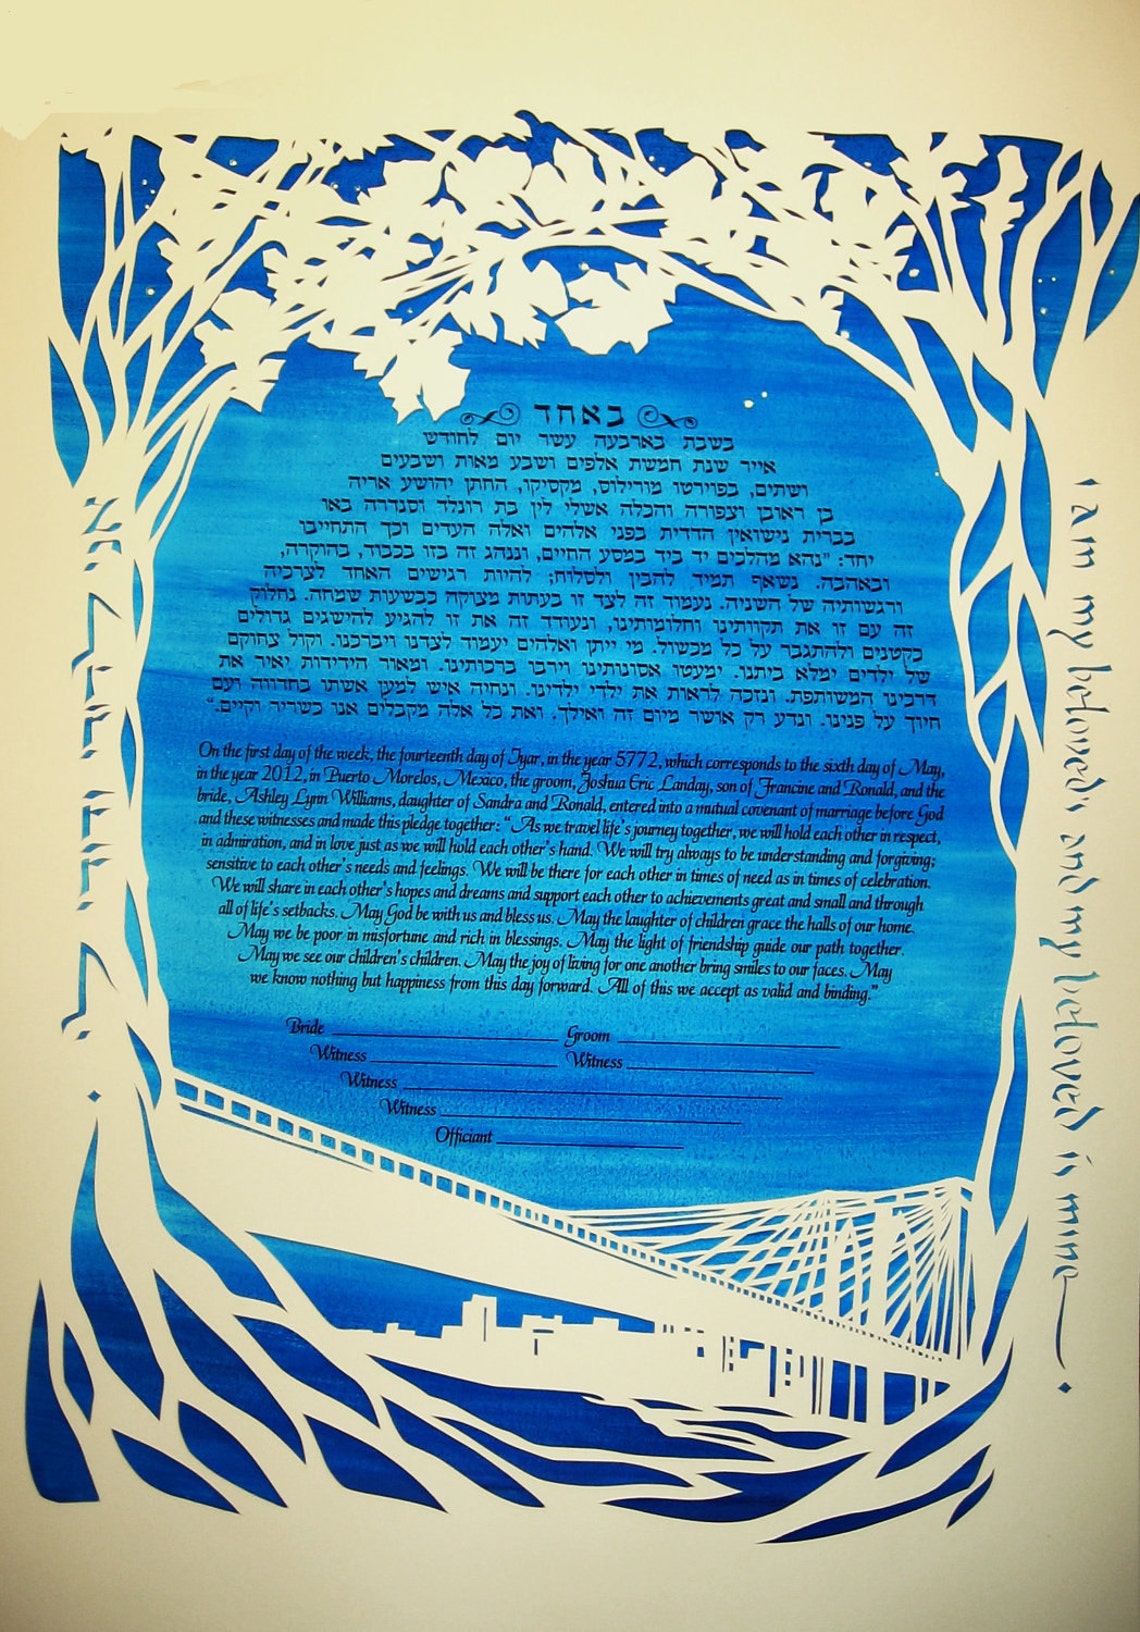 באחד
בשבת בארבעה עשר יום לחודש
אייר שנת חמשת אלפים ושבע מאות ושבעים
ושתים, בפוירטו מורילוס, מקסיקו, החתן יהושע אריה
בן ראובן וצפורה והכלה אשלי לין בת רונלד וסנדרה באו
בברית נישואין הדדית בפני אלהים ואלה העדים וכך התחייבו
יחד: "נהא מהלכים יד ביד במסע החיים, וננהג זה בזו בכבוד, בהוקרה,
ובאהבה. נשאף תמיד להבין ולסלוח; להיות רגישים האחד לצרכיה
ורגשותיה של השניה. נעמוד זה לצד זו בעתות מצוקה כבשעות שמחה. נחלוק
זה עם זו את תקוותינו וחלומותינו, ונעודד זה את זו להגיע להישגים גדולים
כקטנים ולהתגבר על כל מכשול. מי ייתן ואלהים יעמוד לצדנו ויברכנו. וקול צחוקם
של ילדים ימלא ביתנו. ימעטו אסונותינו וירבו ברכותינו. ומאור הידידות יאיר את
דרכינו המשותפת. ונזכה לראות את ילדי ילדינו. ונחיה איש למען אשתו בחדווה ועם
חיוך על פנינו. ונדע רק אושר מיום זה ואילך. ואת כל אלה מקבלים אנו כשריר וקיים."
On the first day of the week, the fourteenth day of Iyar, in the year 5772, which corresponds to the sixth day of May,
in the year 2012, in Puerto Morelos, Mexico, the groom, Joshua Eric Landay, son of Francine and Ronald, and the
bride, Ashley Lynn Williams, daughter of Sandra and Ronald, entered into a mutual covenant of marriage before God
and these witnesses and made this pledge together: "As we travel life's journey together, we will hold each other in respect,
in admiration, and in love just as we will hold each other's hand. We will try always to be understanding and forgiving;
sensitive to each other's needs and feelings. We will be there for each other in times of need as in times of celebration.
We will share in each other's hopes and dreams and support each other to achievements great and small and through
all of life's setbacks. May God be with us and bless us. May the laughter of children grace the halls of our home.
May we be poor in misfortune and rich in blessings. May the light of friendship guide our path together.
May we see our children's children. May the joy of living for one another bring smiles to our faces. May
we know nothing but happiness from this day forward. All of this we accept as valid and binding."
Bride Groom
Witness Witness
Witness
Witness
Officiant
אני לדודי ודודי לי
i am my beloved's and my beloved is mine